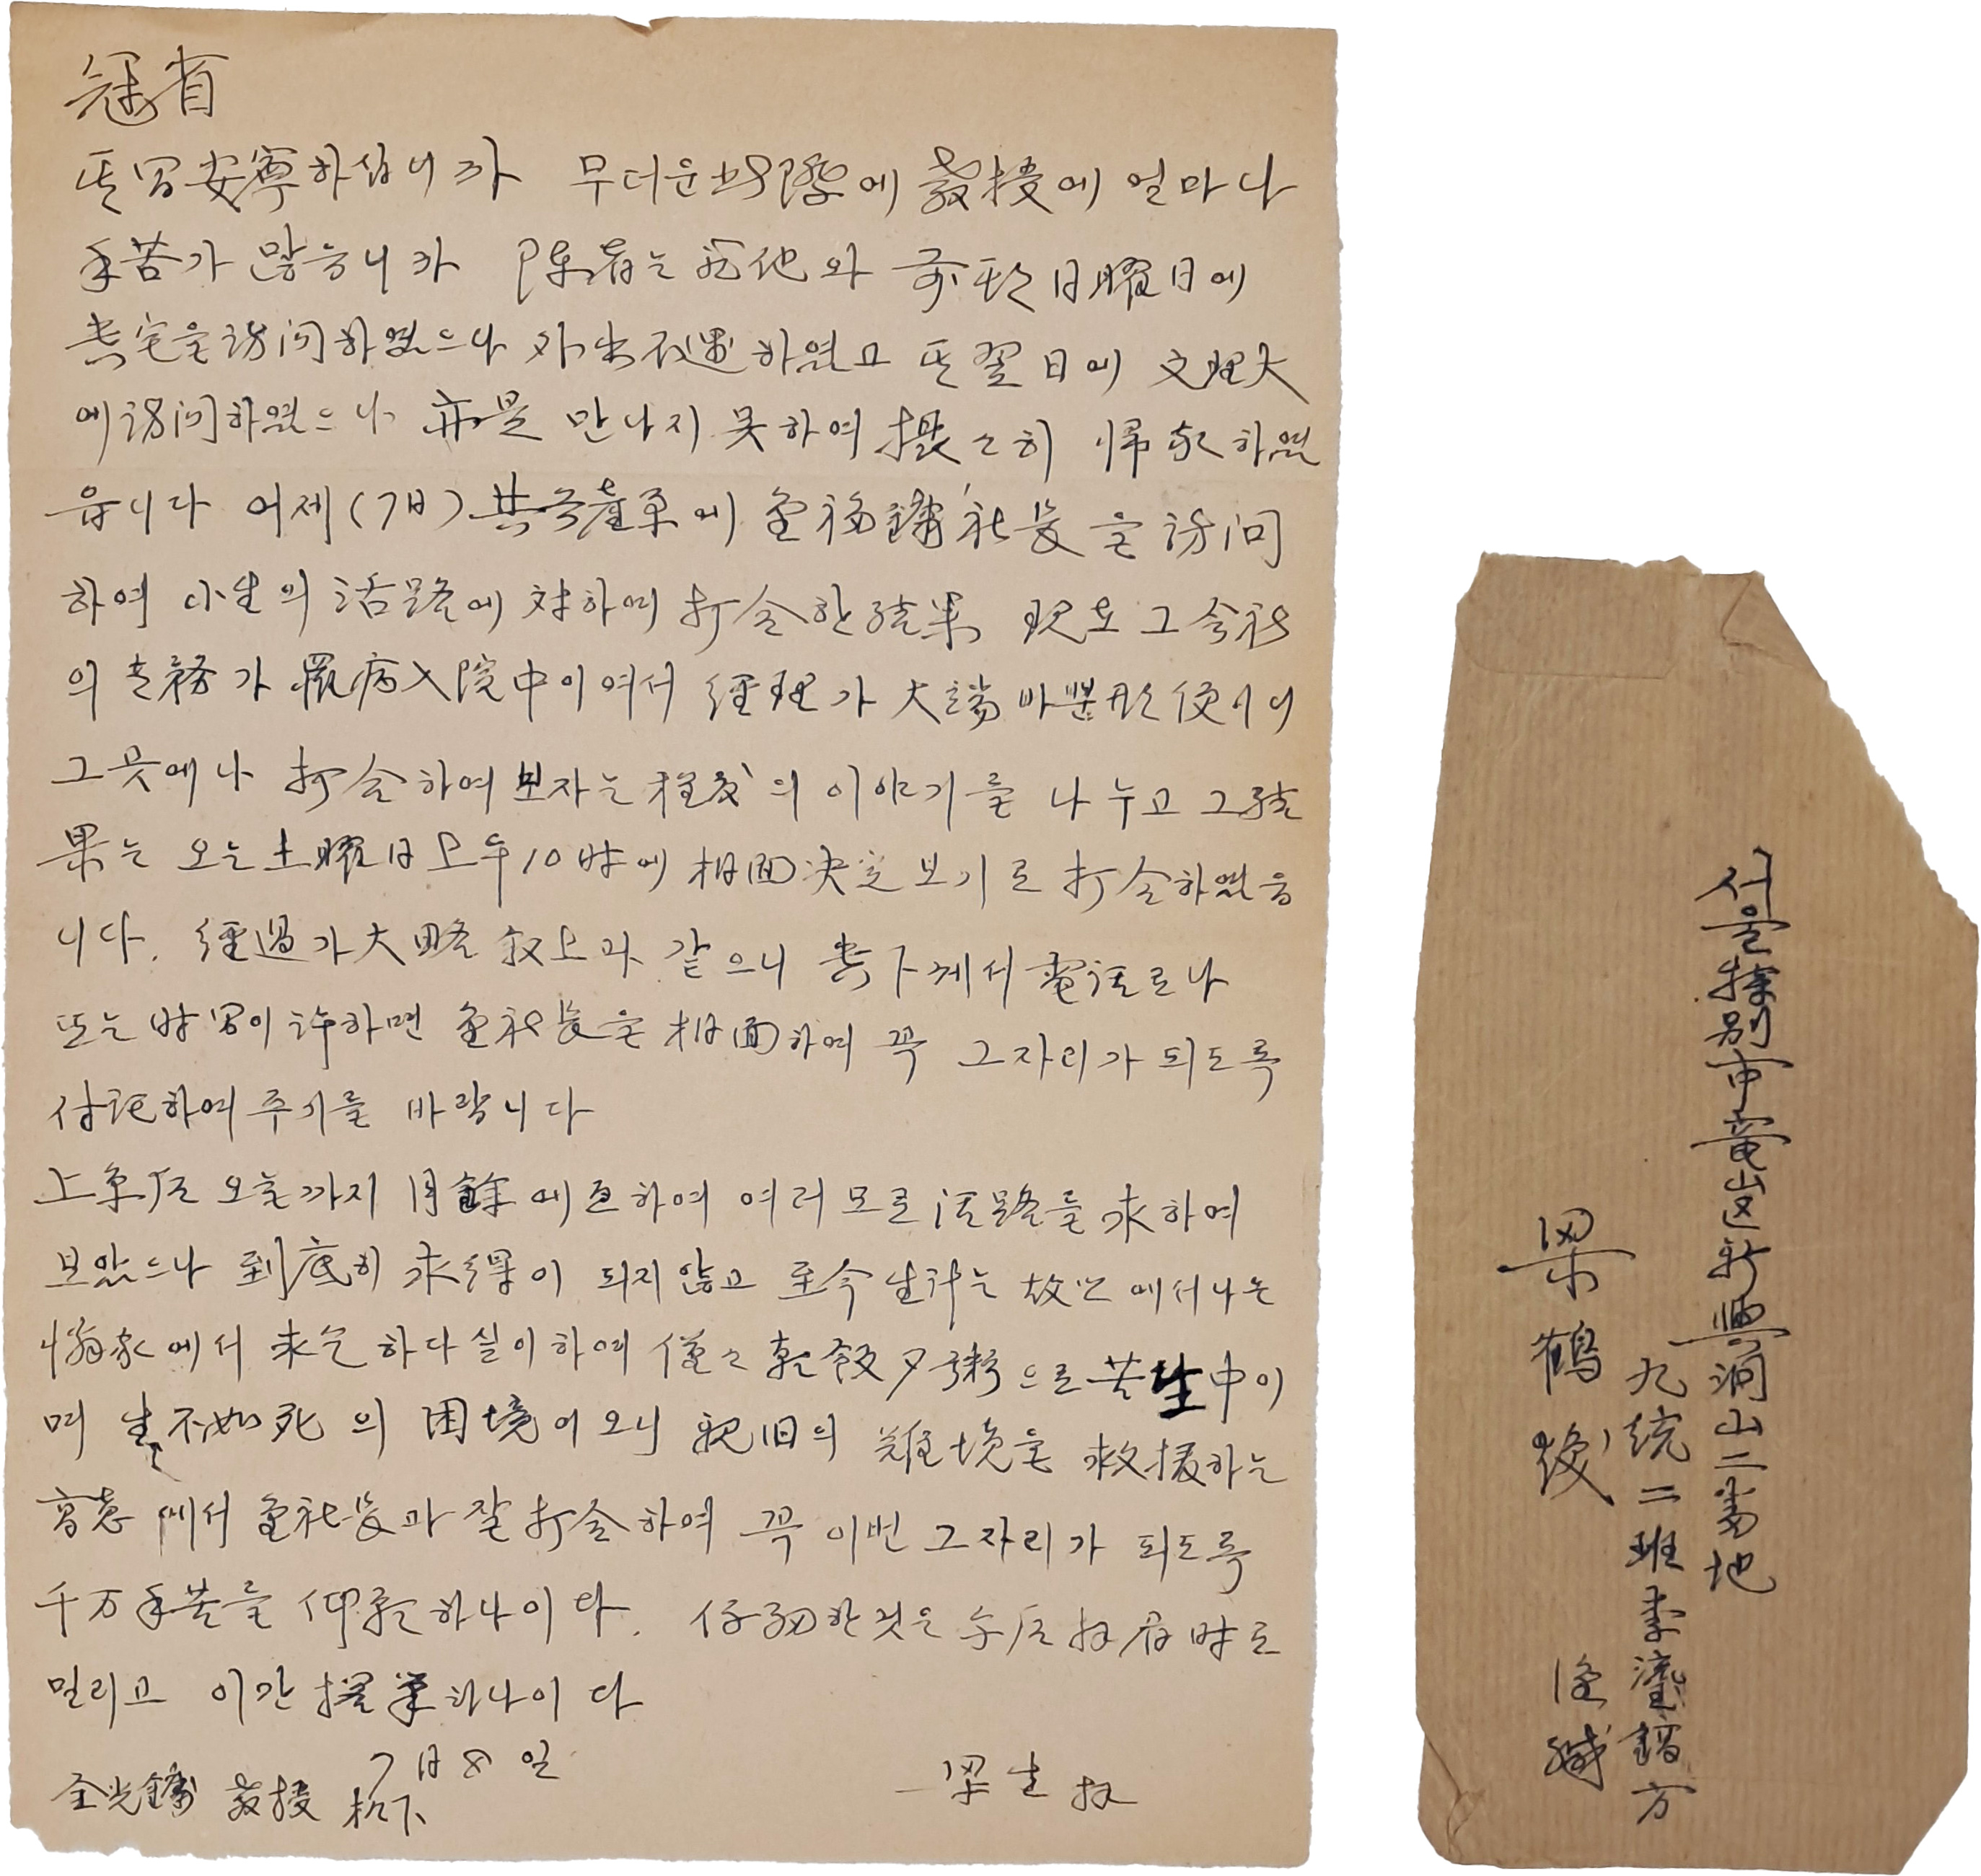 冠省
其間安寧하십니까 무더운 此際에 敎授에 얼마나
手苦가 많읍니까 陳者는 前日曜日에
貴宅을 訪问하였으나 外出不遇하였고 또 翌日에 文理大
에 訪问하였으나 亦是 만나지 못하여 悵々히 帰家하였
읍니다 어제(7日) 金福鏞 社長을 訪问
하여 小生의 活路에 対하여 打合한 結果 現在 그 会社
의 専務가 罹病入院中이여서 経理가 大端 바쁜 形便이니
그곳에나 打合하여 보자는 程度의 이야기를 나누고 그 結
果는 오는 土曜日 上午 10時에 相面決定 보기로 打合하였읍
니다. 経過가 大略 叙上과 같으니 貴下께서 電話로나
또는 时间이 許하면 金社長을 相面하여 꼭 그 자리가 되도록
付託하여 주시를 바랍니다
上京后 오늘까지 月餘에 亘하여 여러모로 活路를 求하여
보았으나 到底히 求得이 되지 않고 至今 生計는 故 에서나는
家에서 求乞하다싶이 하여 僅々 朝飯夕粥으로 苦生中이
며 生不如死의 困境이오니 親旧의 難境을 救援하는
高意에서 金社長과 잘 打合하여 꼭 이번 그 자리가 되도록
千万手苦를 仰願하나이다. 仔細한 것은 今后 拜眉時로
밀리고 이만 擱筆하나이다
7月 8일
全光鏞 敎授 机下 梁生 拜
서울特別市竜山区新興洞山二番地
九統二班李 鎔方
梁鶴煥 謹緘